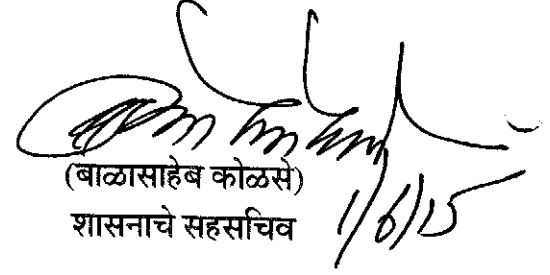 (बाळासाहेब कोळसे)
शासनाचे सहसचिव 1/6/15